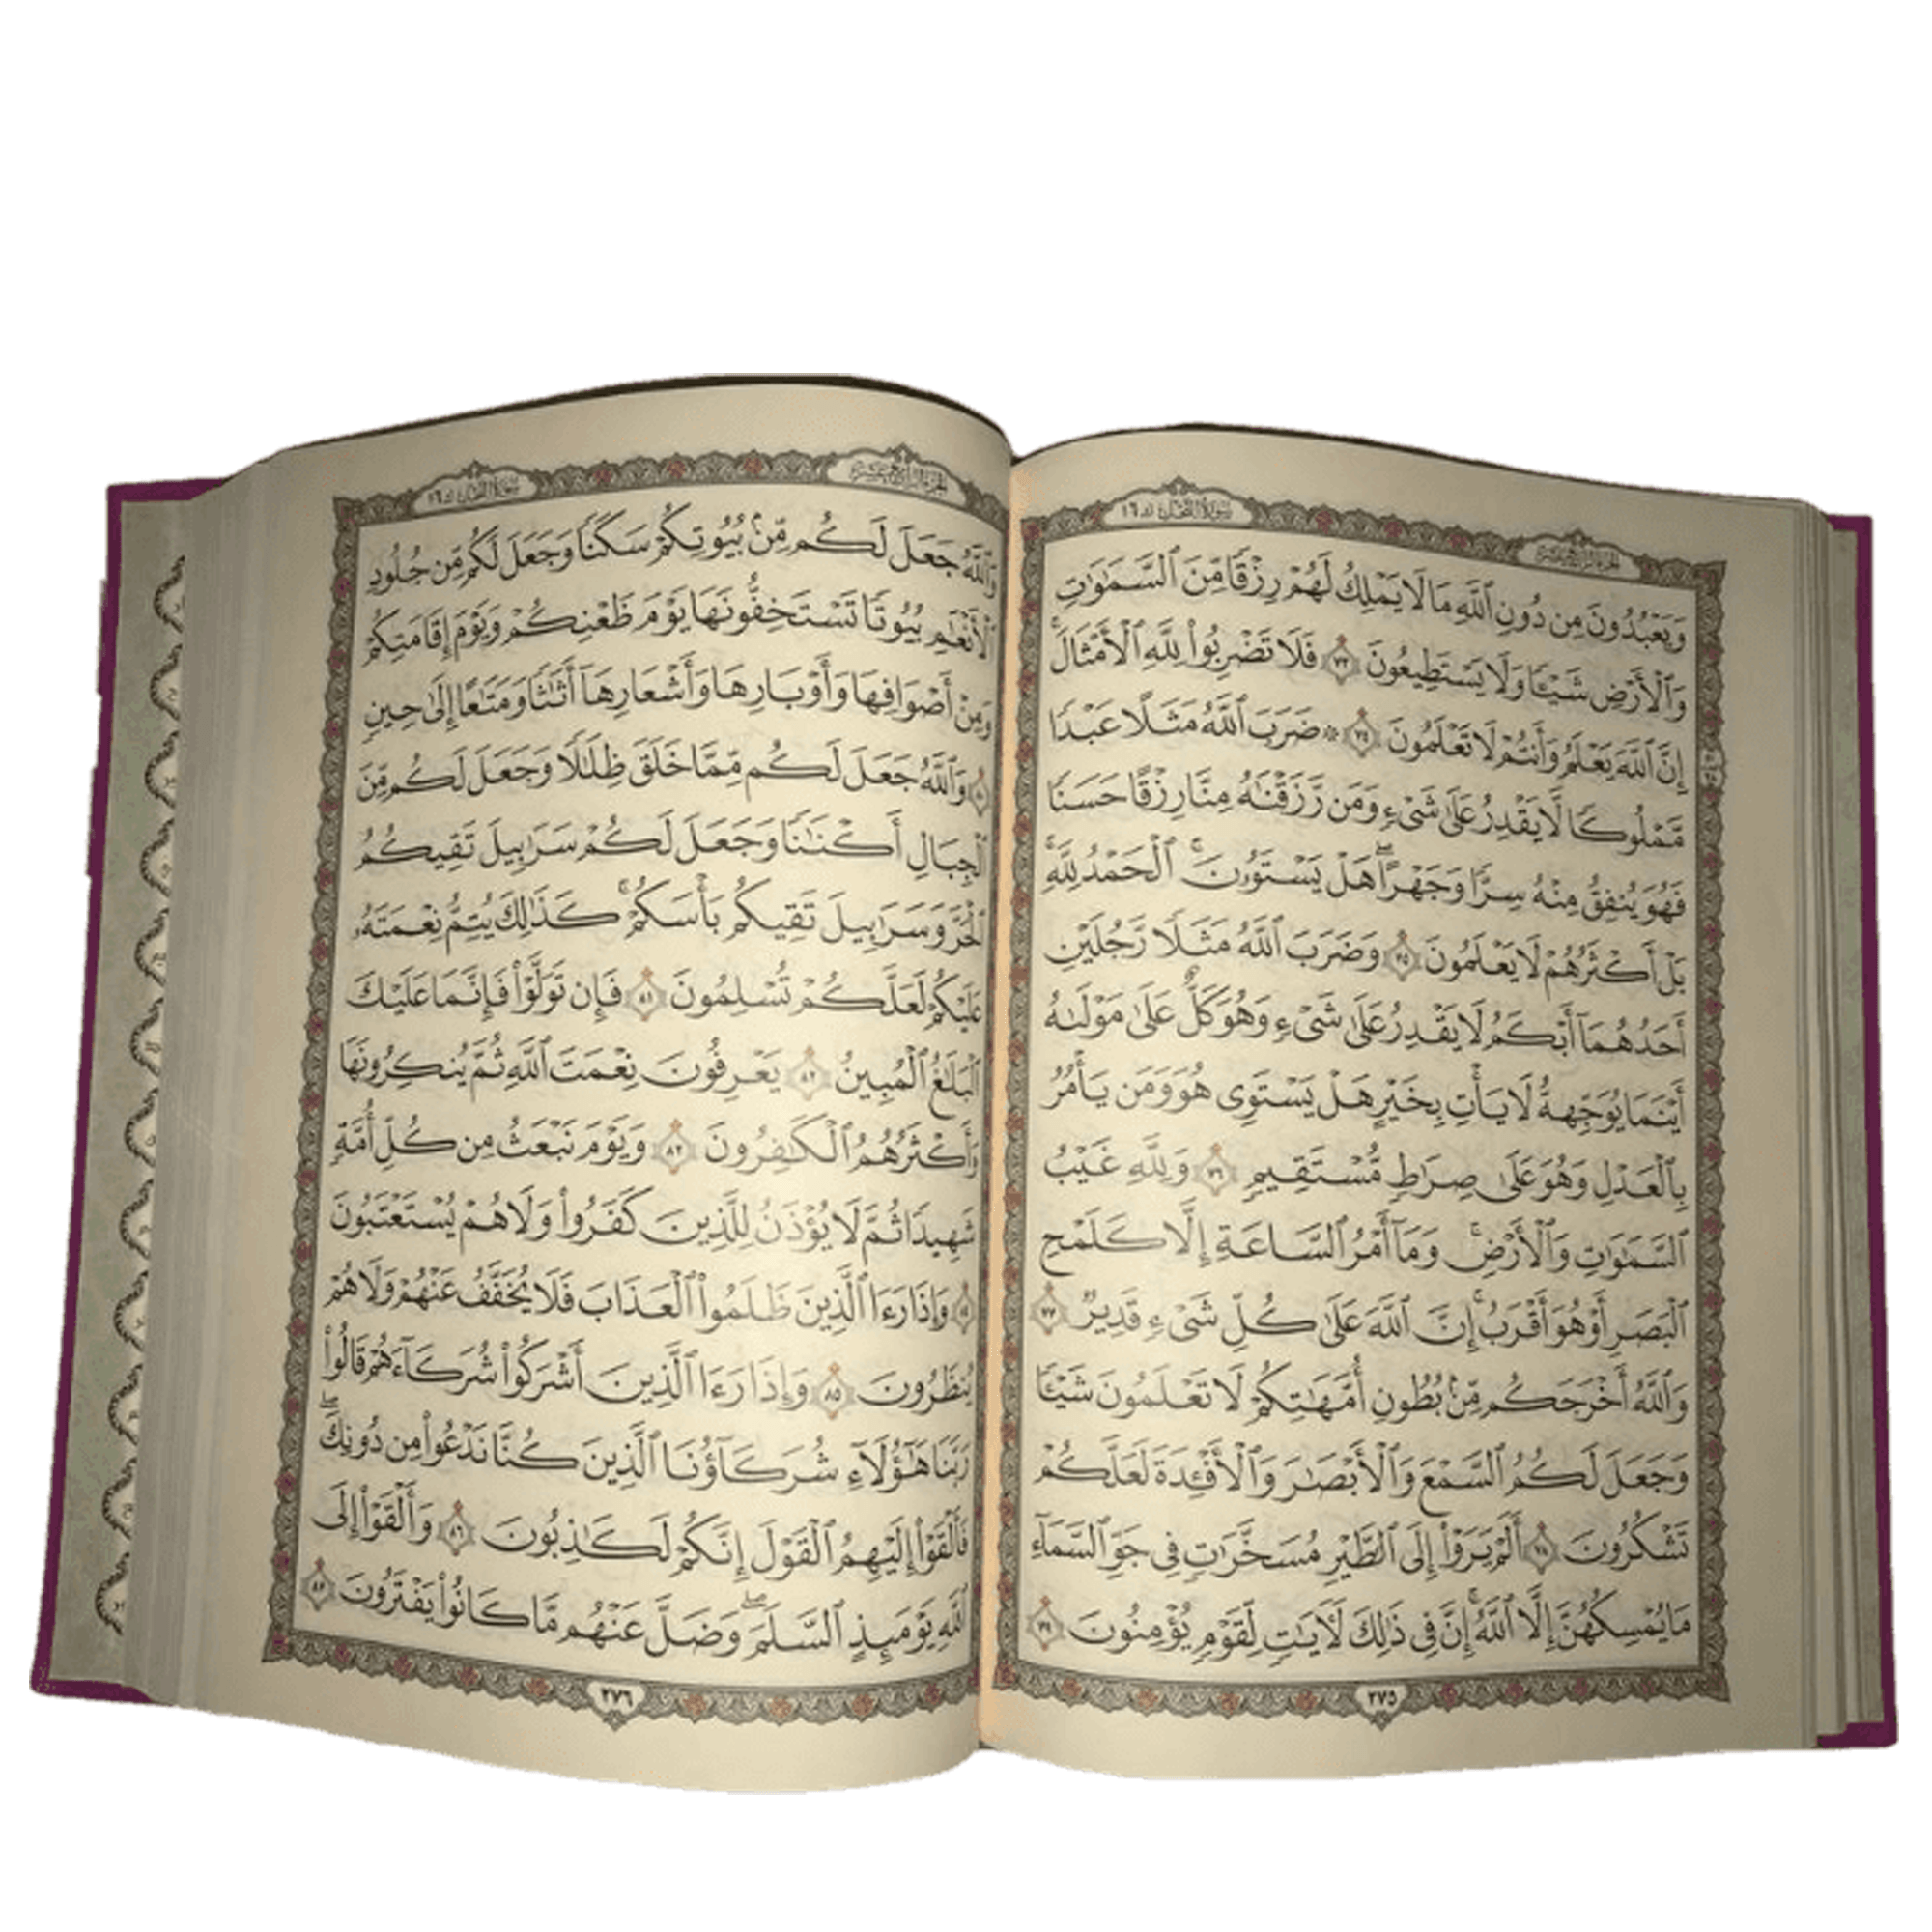 الجزء الرابع عشر
سورة النحل ١٦
وَيَعْبُدُونَ مِن دُونِ ٱللَّهِ مَا لَا يَمْلِكُ لَهُمْ رِزْقًا مِّنَ ٱلسَّمَٰوَٰتِ
وَٱلْأَرْضِ شَيْـًٔا وَلَا يَسْتَطِيعُونَ ٧٣ فَلَا تَضْرِبُوا۟ لِلَّهِ ٱلْأَمْثَالَ ۚ
إِنَّ ٱللَّهَ يَعْلَمُ وَأَنتُمْ لَا تَعْلَمُونَ ٧٤ ۞ ضَرَبَ ٱللَّهُ مَثَلًا عَبْدًا
مَّمْلُوكًا لَّا يَقْدِرُ عَلَىٰ شَىْءٍ وَمَن رَّزَقْنَٰهُ مِنَّا رِزْقًا حَسَنًا
فَهُوَ يُنفِقُ مِنْهُ سِرًّا وَجَهْرًا ۖ هَلْ يَسْتَوُۥنَ ۚ ٱلْحَمْدُ لِلَّهِ ۚ
بَلْ أَكْثَرُهُمْ لَا يَعْلَمُونَ ٧٥ وَضَرَبَ ٱللَّهُ مَثَلًا رَّجُلَيْنِ
أَحَدُهُمَآ أَبْكَمُ لَا يَقْدِرُ عَلَىٰ شَىْءٍ وَهُوَ كَلٌّ عَلَىٰ مَوْلَىٰهُ
أَيْنَمَا يُوَجِّههُّ لَا يَأْتِ بِخَيْرٍ هَلْ يَسْتَوِى هُوَ وَمَن يَأْمُرُ
بِٱلْعَدْلِ وَهُوَ عَلَىٰ صِرَٰطٍ مُّسْتَقِيمٍ ٧٦ وَلِلَّهِ غَيْبُ
ٱلسَّمَٰوَٰتِ وَٱلْأَرْضِ ۚ وَمَآ أَمْرُ ٱلسَّاعَةِ إِلَّا كَلَمْحِ
ٱلْبَصَرِ أَوْ هُوَ أَقْرَبُ ۚ إِنَّ ٱللَّهَ عَلَىٰ كُلِّ شَىْءٍ قَدِيرٌ ٧٧
وَٱللَّهُ أَخْرَجَكُم مِّنۢ بُطُونِ أُمَّهَٰتِكُمْ لَا تَعْلَمُونَ شَيْـًٔا
وَجَعَلَ لَكُمُ ٱلسَّمْعَ وَٱلْأَبْصَٰرَ وَٱلْأَفْـِٔدَةَ لَعَلَّكُمْ
تَشْكُرُونَ ٧٨ أَلَمْ يَرَوْا۟ إِلَى ٱلطَّيْرِ مُسَخَّرَٰتٍ فِى جَوِّ ٱلسَّمَآءِ
مَا يُمْسِكُهُنَّ إِلَّا ٱللَّهُ ۗ إِنَّ فِى ذَٰلِكَ لَـَٔايَٰتٍ لِّقَوْمٍ يُؤْمِنُونَ ٧٩
٢٧٥
الجزء الرابع عشر
سورة النحل ١٦
وَٱللَّهُ جَعَلَ لَكُم مِّنۢ بُيُوتِكُمْ سَكَنًا وَجَعَلَ لَكُم مِّن جُلُودِ
ٱلْأَنْعَٰمِ بُيُوتًا تَسْتَخِفُّونَهَا يَوْمَ ظَعْنِكُمْ وَيَوْمَ إِقَامَتِكُمْ
وَمِنْ أَصْوَافِهَا وَأَوْبَارِهَا وَأَشْعَارِهَآ أَثَٰثًا وَمَتَٰعًا إِلَىٰ حِينٍ
٨٠ وَٱللَّهُ جَعَلَ لَكُم مِّمَّا خَلَقَ ظِلَٰلًا وَجَعَلَ لَكُم مِّنَ
ٱلْجِبَالِ أَكْنَٰنًا وَجَعَلَ لَكُمْ سَرَٰبِيلَ تَقِيكُمُ
ٱلْحَرَّ وَسَرَٰبِيلَ تَقِيكُم بَأْسَكُمْ ۚ كَذَٰلِكَ يُتِمُّ نِعْمَتَهُۥ
عَلَيْكُمْ لَعَلَّكُمْ تُسْلِمُونَ ٨١ فَإِن تَوَلَّوْا۟ فَإِنَّمَا عَلَيْكَ
ٱلْبَلَٰغُ ٱلْمُبِينُ ٨٢ يَعْرِفُونَ نِعْمَتَ ٱللَّهِ ثُمَّ يُنكِرُونَهَا
وَأَكْثَرُهُمُ ٱلْكَٰفِرُونَ ٨٣ وَيَوْمَ نَبْعَثُ مِن كُلِّ أُمَّةٍ
شَهِيدًا ثُمَّ لَا يُؤْذَنُ لِلَّذِينَ كَفَرُوا۟ وَلَا هُمْ يُسْتَعْتَبُونَ
٨٤ وَإِذَا رَءَا ٱلَّذِينَ ظَلَمُوا۟ ٱلْعَذَابَ فَلَا يُخَفَّفُ عَنْهُمْ وَلَا هُمْ
يُنظَرُونَ ٨٥ وَإِذَا رَءَا ٱلَّذِينَ أَشْرَكُوا۟ شُرَكَآءَهُمْ قَالُوا۟
رَبَّنَا هَٰٓؤُلَآءِ شُرَكَآؤُنَا ٱلَّذِينَ كُنَّا نَدْعُوا۟ مِن دُونِكَ ۖ
فَأَلْقَوْا۟ إِلَيْهِمُ ٱلْقَوْلَ إِنَّكُمْ لَكَٰذِبُونَ ٨٦ وَأَلْقَوْا۟ إِلَى
ٱللَّهِ يَوْمَئِذٍ ٱلسَّلَمَ ۖ وَضَلَّ عَنْهُم مَّا كَانُوا۟ يَفْتَرُونَ ٨٧
٢٧٦